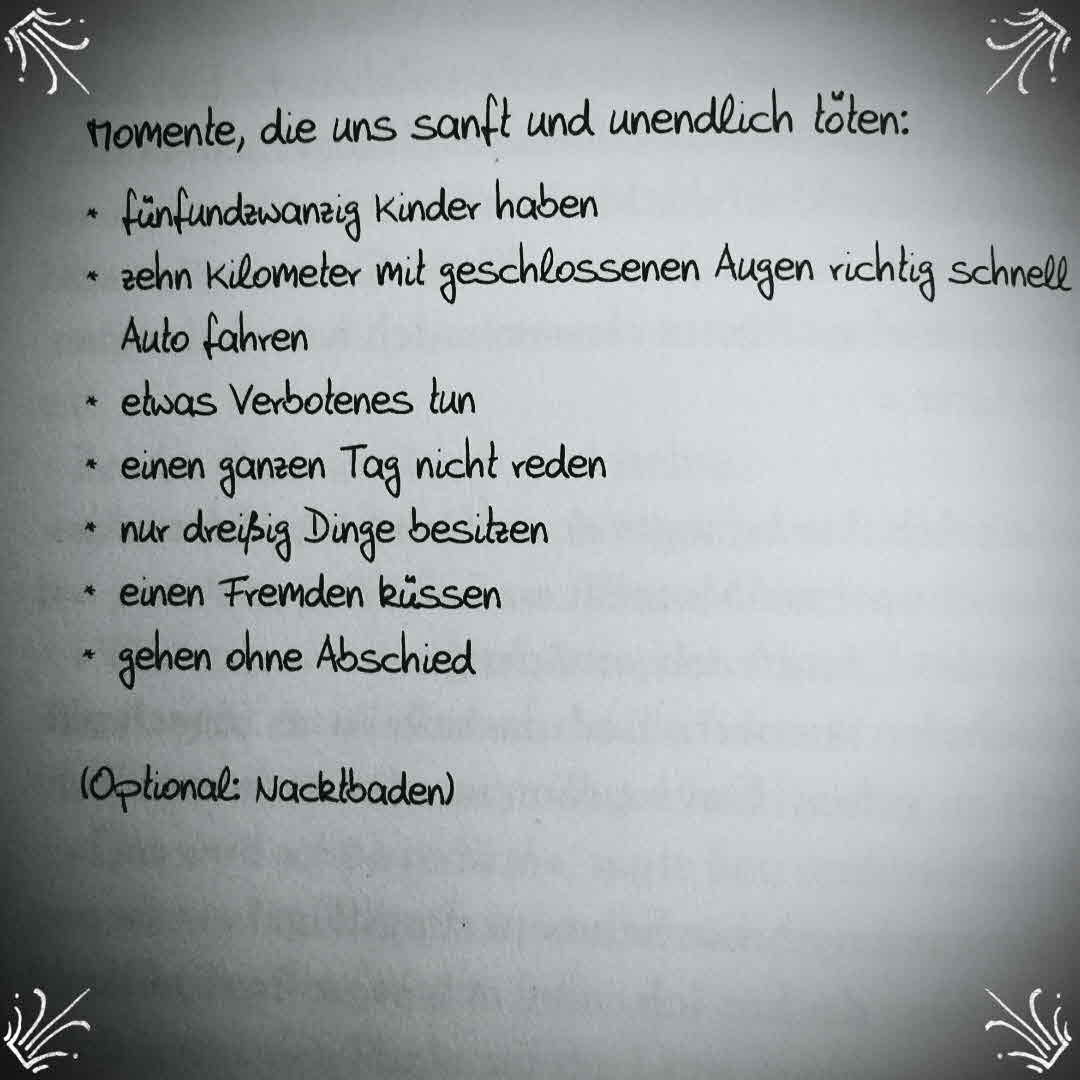 Momente, die uns sanft und unendlich töten:
* fünfundzwanzig Kinder haben
* zehn Kilometer mit geschlossenen Augen richtig schnell
Auto fahren
* etwas Verbotenes tun
* einen ganzen Tag nicht reden
* nur dreißig Dinge besitzen
* einen Fremden küssen
* gehen ohne Abschied
(Optional: Nacktbaden)